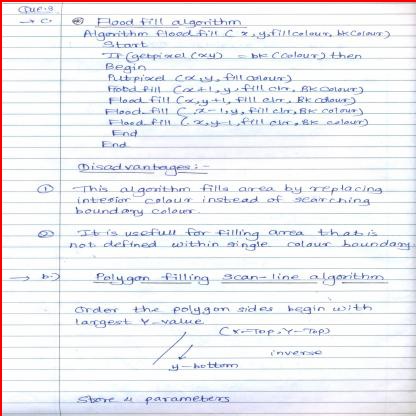 Que.3
→ c. * Flood fill algorithm
Algorithm flood fill (x, y, fill colour, bk colour)
Start
If (getpixel (xy) = bk (colour) then
Begin
Putpixel (x, y, fill colour)
Flood fill (x+1, y, fill clr, Bk colour)
Flood fill (x, y+1, fill clr, Bk colour)
Flood fill (x-1, y, fill clr, Bk colour)
Flood fill (x, y-1, fill clr, Bk colour)
End
End
Disadvantages :-
① This algorithm fills area by replacing
interior colour instead of searching
boundary colour.
② It is usefull for filling area that is
not defined within single colour boundary
→ b.) Polygon filling scan-line algorithm
Order the polygon sides begin with
largest Y-value
(X-Top, Y-Top)
inverse
y-bottom
Store 4 parameters